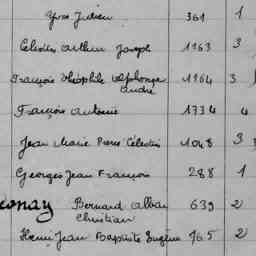 Yves Julien 361 1
Célestin Arthur Joseph 1163 3
François Théophile Alphonse 1164 3
André
François Antoine 1734 4
Jean Marie Pierre Célestin 1048 3
Georges Jean François 288 1
Bernard Alban 639 2
Christian
Henri Jean Baptiste Eugène 465 2